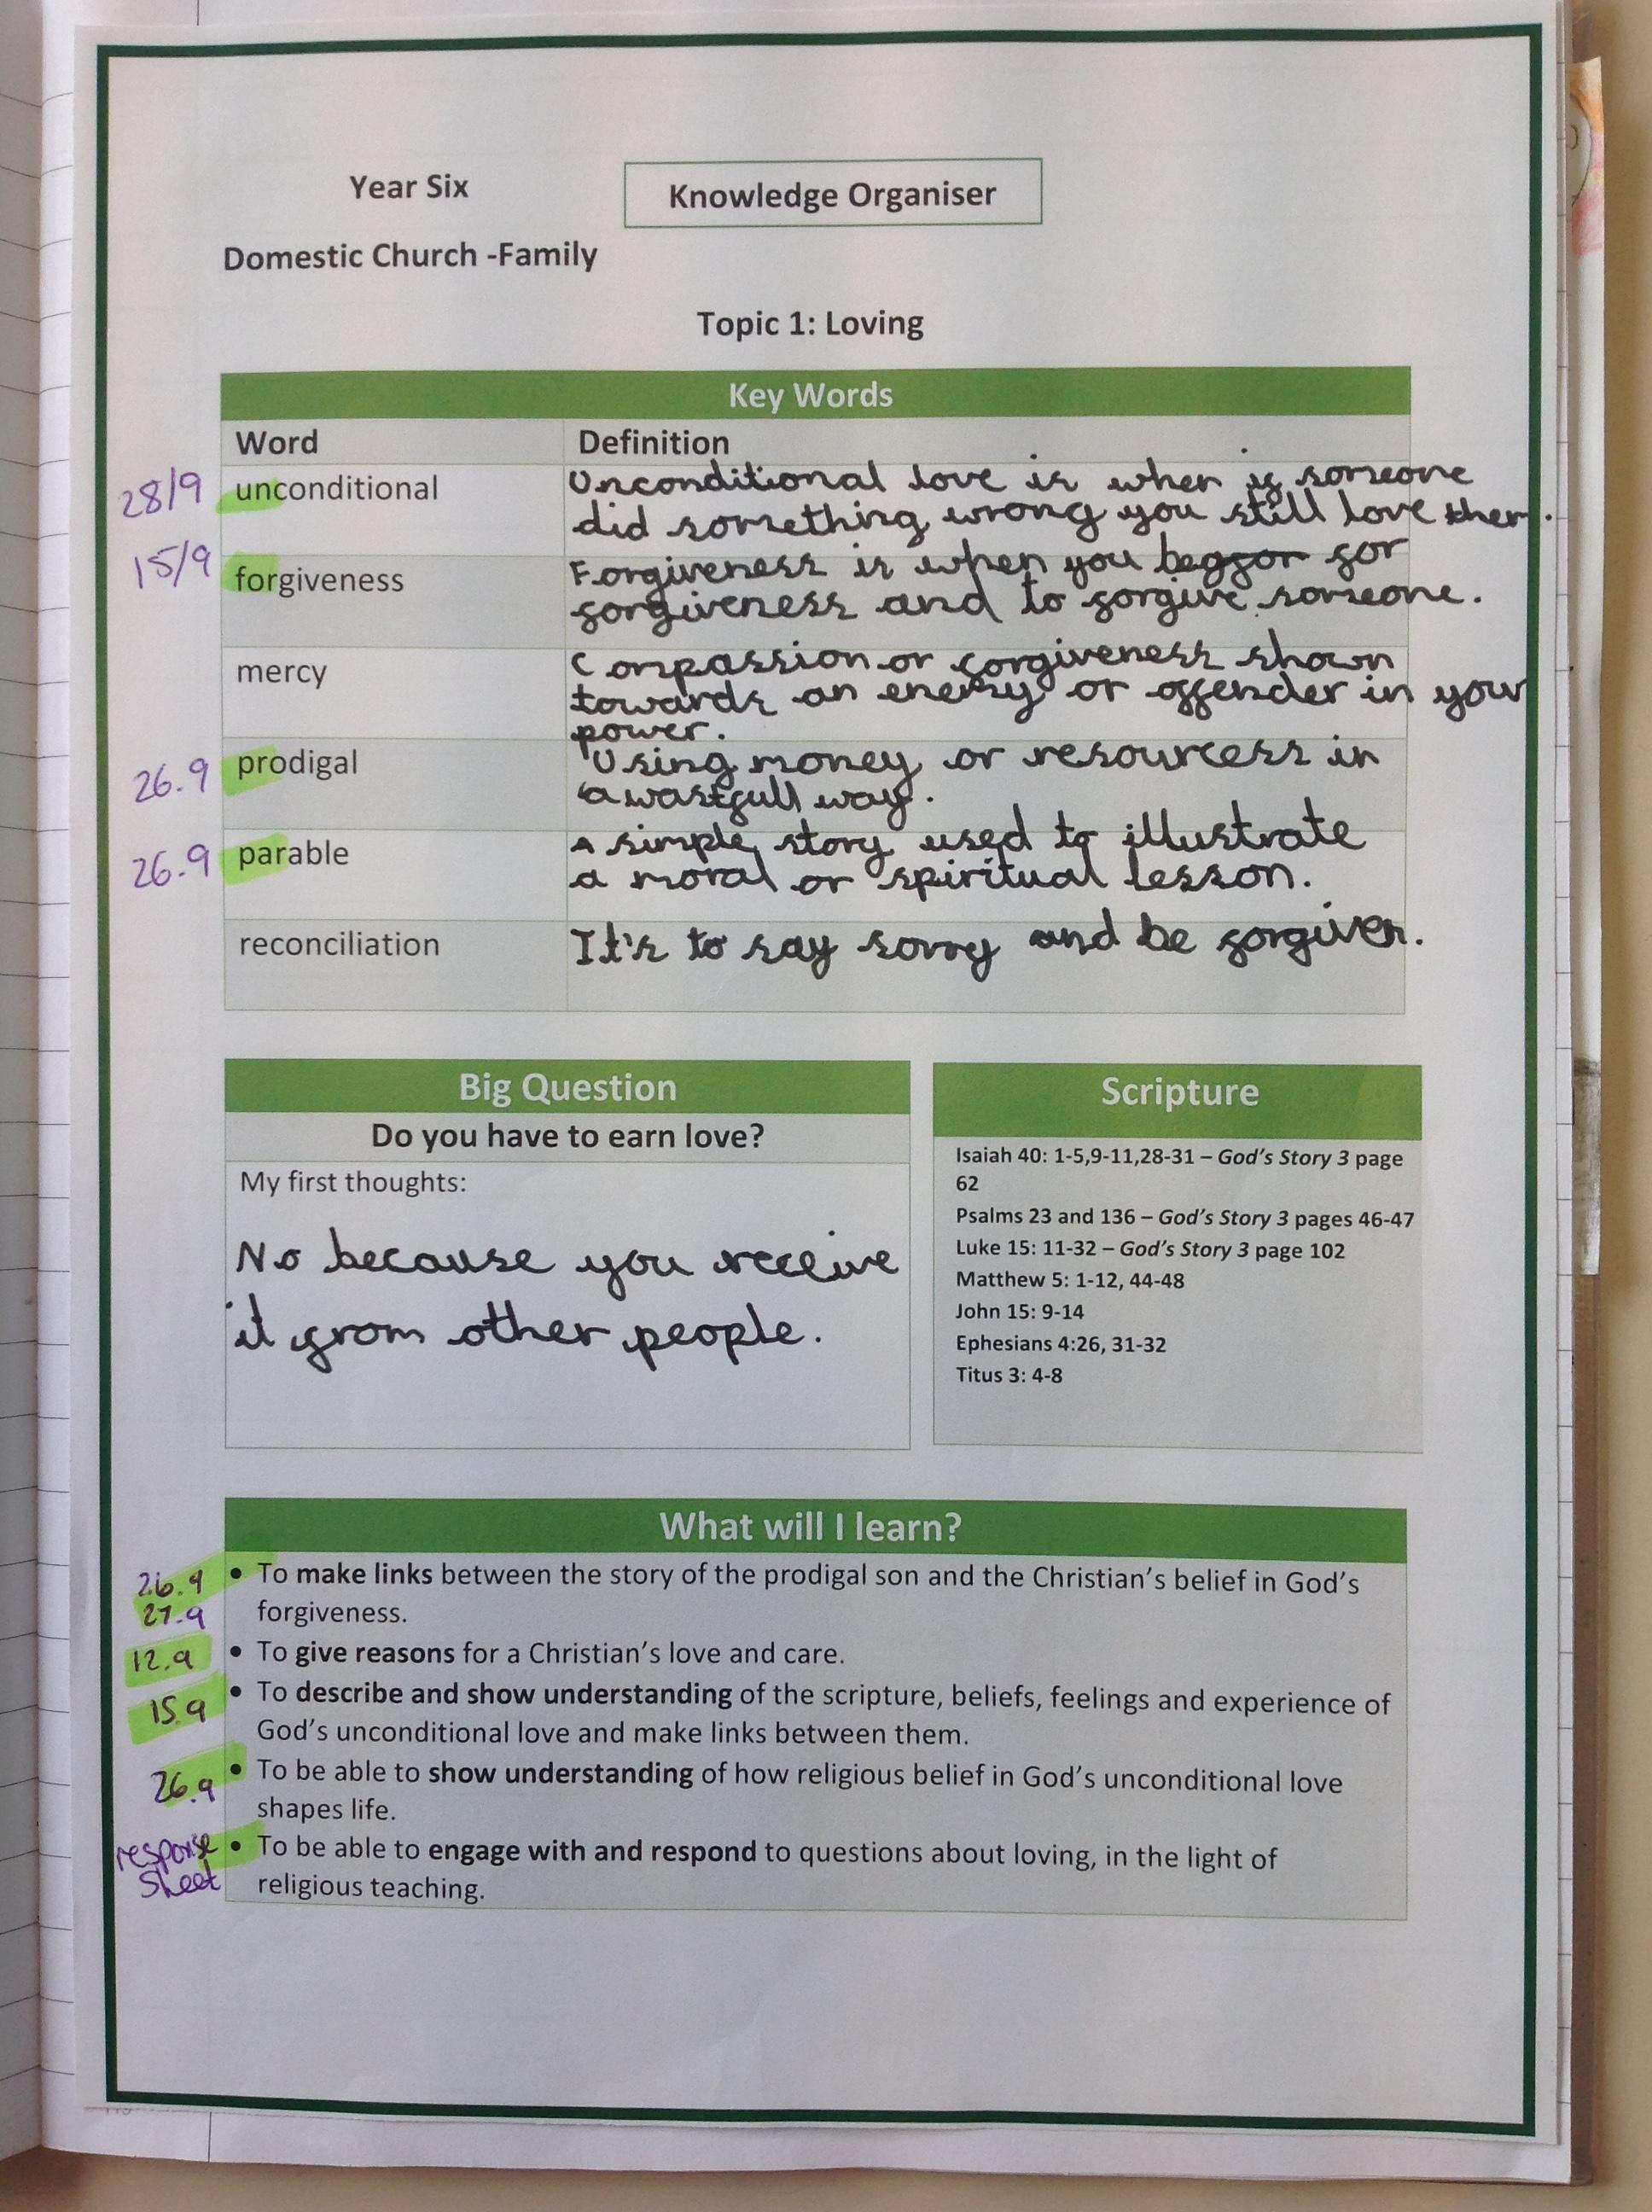 Year Six
Knowledge Organiser
Domestic Church -Family
Topic 1: Loving
Key Words
Word Definition
28/9 unconditional Unconditional love is when if someone
did something wrong you still love them.
15/9 forgiveness Forgiveness is when you for
forgiveness and to forgive someone.
mercy Compassion or forgiveness shown
towards an enemy or offender in your
power.
26.9 prodigal Using money or resourcess in
a wastfull way.
26.9 parable A simple story used to illustrate
a moral or spiritual lesson.
reconciliation It's to say sorry and be forgiven.
Big Question
Do you have to earn love?
My first thoughts:
No because you receive
it from other people.
Scripture
Isaiah 40: 1-5,9-11,28-31 – God's Story 3 page
62
Psalms 23 and 136 – God's Story 3 pages 46-47
Luke 15: 11-32 – God's Story 3 page 102
Matthew 5: 1-12, 44-48
John 15: 9-14
Ephesians 4:26, 31-32
Titus 3: 4-8
What will I learn?
26.9 • To make links between the story of the prodigal son and the Christian's belief in God's
27.9 forgiveness.
12.9 • To give reasons for a Christian's love and care.
15.9 • To describe and show understanding of the scripture, beliefs, feelings and experience of
God's unconditional love and make links between them.
26.9 • To be able to show understanding of how religious belief in God's unconditional love
shapes life.
response • To be able to engage with and respond to questions about loving, in the light of
sheet religious teaching.